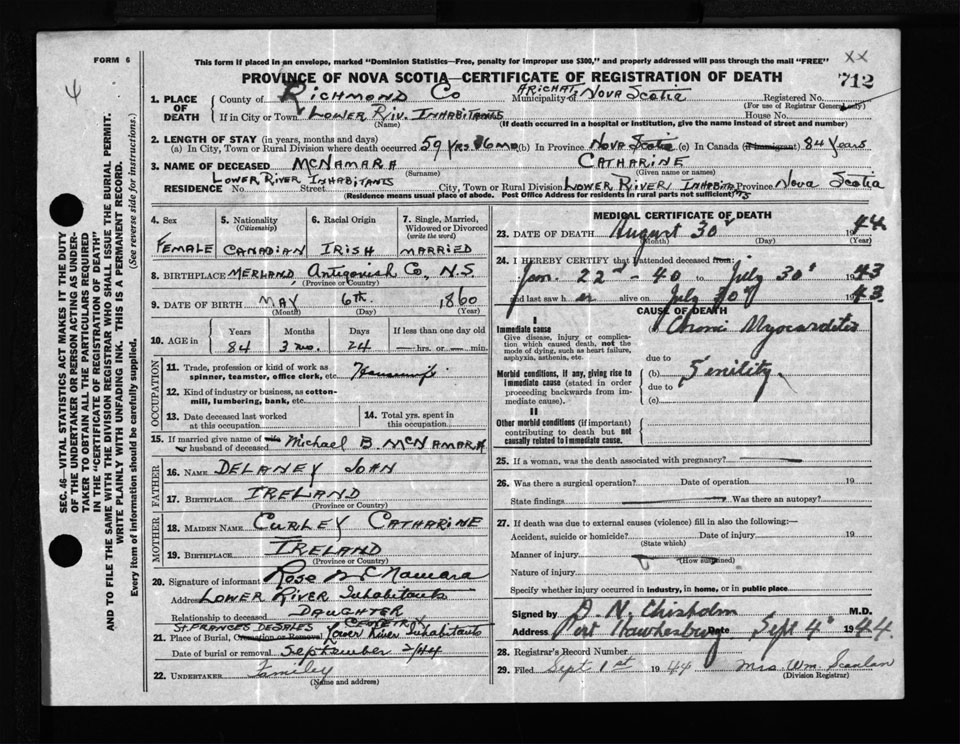 FORM 6
This form if placed in an envelope, marked "Dominion Statistics—Free, penalty for improper use $300," and properly addressed will pass through the mail "FREE"
XX
PROVINCE OF NOVA SCOTIA—CERTIFICATE OF REGISTRATION OF DEATH
712
1. PLACE OF DEATH
County of RICHMOND CO Municipality of ARICHAT NOVA SCOTIA Registered No.
(For use of Registrar General only)
If in City or Town LOWER RIV. INHABITANTS House No.
(Name) (If death occurred in a hospital or institution, give the name instead of street and number)
2. LENGTH OF STAY (in years, months and days)
(a) In City, Town or Rural Division where death occurred 59 YRS 6 MO (b) In Province NOVA SCOTIA (c) In Canada (if immigrant) 84 YEARS
3. NAME OF DECEASED MCNAMARA CATHARINE
(Surname) (Given name or names)
LOWER RIVER INHABITANTS
RESIDENCE No. Street City, Town or Rural Division LOWER RIVER INHABITANTS Province NOVA SCOTIA
(Residence means usual place of abode. Post Office Address for residents in rural parts not sufficient)
4. Sex FEMALE
5. Nationality (Citizenship) CANADIAN
6. Racial Origin IRISH
7. Single, Married, Widowed or Divorced (write the word) MARRIED
8. BIRTHPLACE MERLAND Antigonish Co., N.S.
(Province or Country)
9. DATE OF BIRTH MAY 6th 1860
(Month) (Day) (Year)
10. AGE in Years Months Days If less than one day old
84 3 mo. 24 hrs. or min.
OCCUPATION
11. Trade, profession or kind of work as spinner, teamster, office clerk, etc. Housewife
12. Kind of industry or business, as cotton-mill, lumbering, bank, etc.
13. Date deceased last worked at this occupation
14. Total yrs. spent in this occupation
15. If married give name of wife or husband of deceased Michael B. MCNAMARA
FATHER
16. NAME DELANEY JOHN
17. BIRTHPLACE IRELAND
(Province or Country)
MOTHER
18. MAIDEN NAME CURLEY CATHARINE
19. BIRTHPLACE IRELAND
(Province or Country)
20. Signature of informant Rose McNamara
Address LOWER RIVER Inhabitants
Relationship to deceased DAUGHTER
ST. FRANCES DESALES CEMETRY
21. Place of Burial, Cremation or Removal Lower River Inhabitants
Date of burial or removal September 2/44
22. UNDERTAKER Family
(Name and address)
MEDICAL CERTIFICATE OF DEATH
23. DATE OF DEATH August 30 1944
(Month) (Day) (Year)
24. I HEREBY CERTIFY that I attended deceased from:
Jan. 22nd - 40 to July 30 1943
and last saw her alive on July 30 1943
CAUSE OF DEATH
I
Immediate cause
Give disease, injury or complication which caused death, not the mode of dying, such as heart failure, asphyxia, asthenia, etc.
(a) Chroni Myocarditis
due to
Morbid conditions, if any, giving rise to immediate cause (stated in order proceeding backwards from immediate cause).
(b) Senility
due to
(c)
II
Other morbid conditions (if important) contributing to death but not causally related to immediate cause.
25. If a woman, was the death associated with pregnancy?
26. Was there a surgical operation? Date of operation 19
State findings Was there an autopsy?
27. If death was due to external causes (violence) fill in also the following:—
Accident, suicide or homicide? Date of injury 19
(State which)
Manner of injury
(How sustained)
Nature of injury
Specify whether injury occurred in industry, in home, or in public place
Signed by A. N. Chisholm M.D.
Address Port Hawkesbury Date Sept 4 1944
28. Registrar's Record Number
29. Filed Sept 1st 1944 Mrs. Wm Scanlan
(Division Registrar)
SEC. 46—VITAL STATISTICS ACT MAKES IT THE DUTY
OF THE UNDERTAKER OR PERSON ACTING AS UNDER-
TAKER TO OBTAIN ALL THE PARTICULARS REQUIRED
IN THE "CERTIFICATE OF REGISTRATION OF DEATH"
AND TO FILE THE SAME WITH THE DIVISION REGISTRAR WHO SHALL ISSUE THE BURIAL PERMIT.
WRITE PLAINLY WITH UNFADING INK. THIS IS A PERMANENT RECORD.
Every item of information should be carefully supplied. (See reverse side for instructions.)